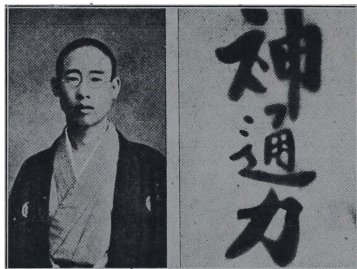 神通力